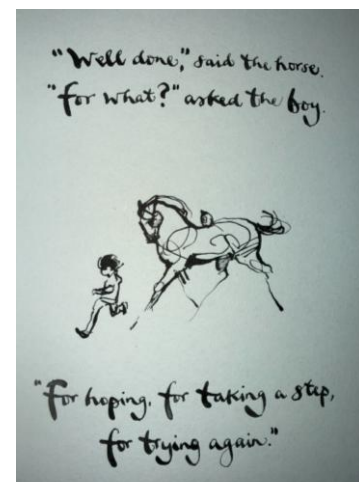 "Well done," said the horse.
"for what?" asked the boy.
"For hoping. for taking a step,
for trying again."